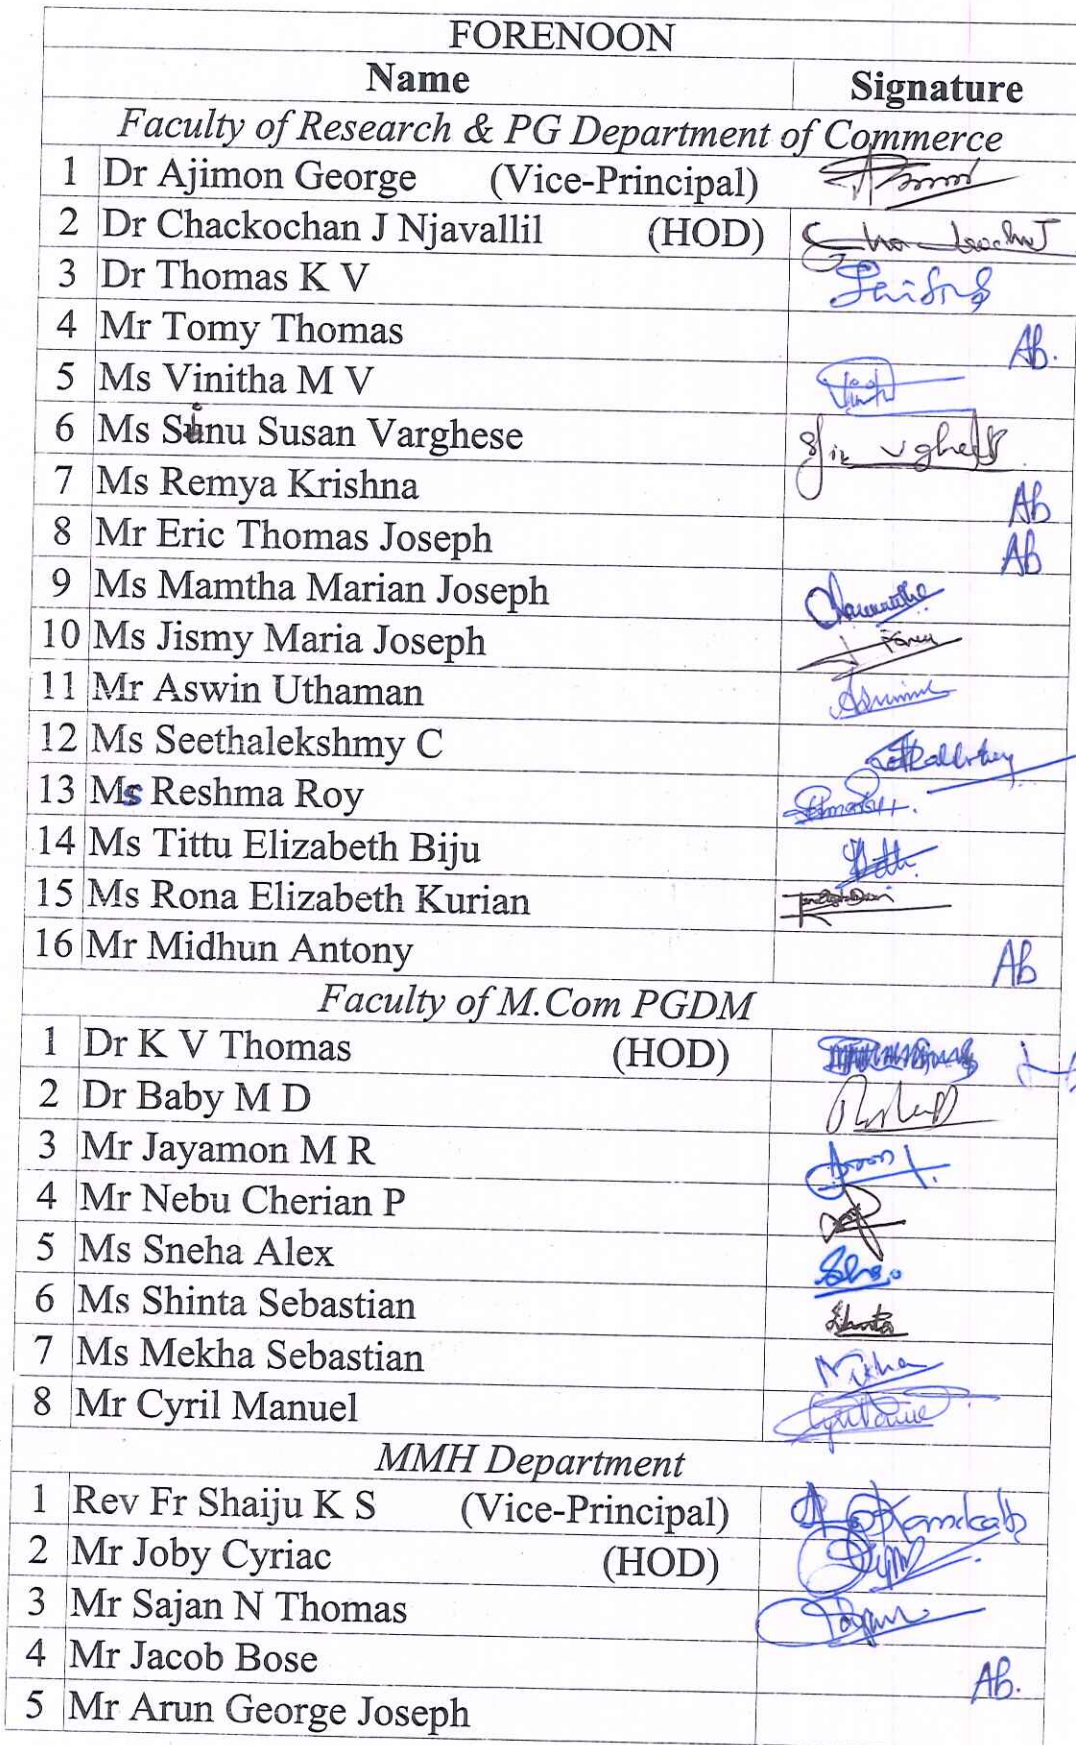 FORENOON
Name Signature
Faculty of Research & PG Department of Commerce
1 Dr Ajimon George (Vice-Principal)
2 Dr Chackochan J Njavallil (HOD)
3 Dr Thomas K V
4 Mr Tomy Thomas Ab.
5 Ms Vinitha M V
6 Ms Sinu Susan Varghese
7 Ms Remya Krishna Ab
8 Mr Eric Thomas Joseph Ab
9 Ms Mamtha Marian Joseph
10 Ms Jismy Maria Joseph
11 Mr Aswin Uthaman
12 Ms Seethalekshmy C
13 Ms Reshma Roy
14 Ms Tittu Elizabeth Biju
15 Ms Rona Elizabeth Kurian
16 Mr Midhun Antony Ab
Faculty of M.Com PGDM
1 Dr K V Thomas (HOD)
2 Dr Baby M D
3 Mr Jayamon M R
4 Mr Nebu Cherian P
5 Ms Sneha Alex
6 Ms Shinta Sebastian
7 Ms Mekha Sebastian
8 Mr Cyril Manuel
MMH Department
1 Rev Fr Shaiju K S (Vice-Principal)
2 Mr Joby Cyriac (HOD)
3 Mr Sajan N Thomas
4 Mr Jacob Bose Ab.
5 Mr Arun George Joseph